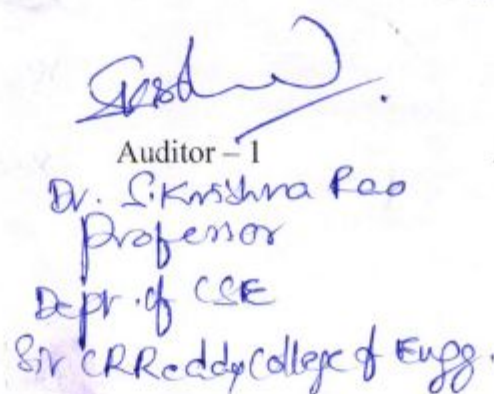 Auditor – 1
Dr. S. Krishna Rao
Professor
Dept. of CSE
Sir CRReddy College of Engg.